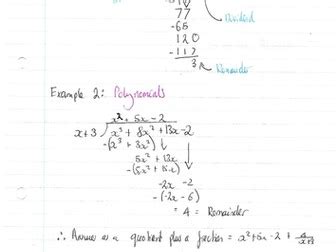 77
-65
120
-117
3
Dividend
Remainder
Example 2: Polynomials
x² + 5x - 2
x + 3 √ x³ + 8x² + 13x - 2
-(x³ + 3x²)
5x² + 13x
-(5x² + 15x)
-2x - 2
-(-2x - 6)
= 4 = Remainder
∴ Answer as a quotient plus a fraction = x² + 5x - 2 + 4/x+3